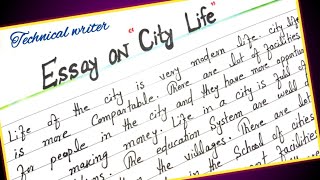 Technical writer
Essay on "City Life"
Life of the city is very modern life city life
is more compartable. There are lot of facilities
for people in the city and they have more opportun
making money. Life in a city is full of
The education system are well d
the villages. There are lot
in the School of cities
facilities